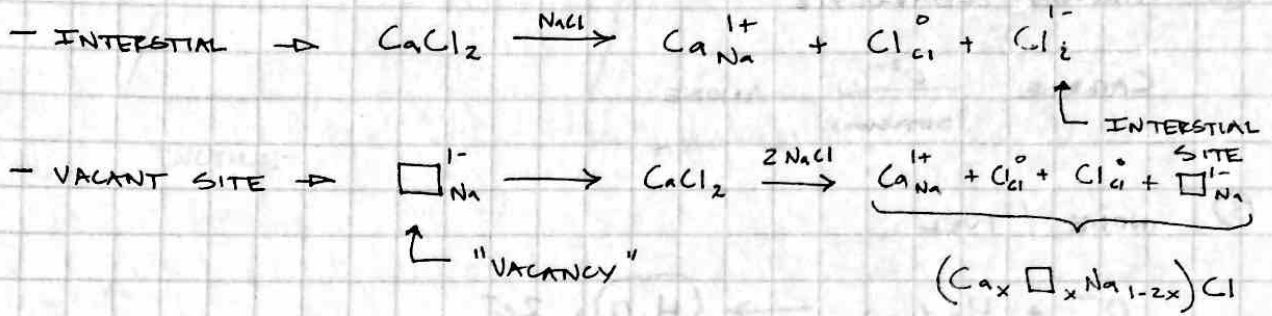 - INTERSTIAL → CaCl₂ —NaCl→ Ca_Na^1+ + Cl_Cl^0 + Cl_i^1-
INTERSTIAL SITE
- VACANT SITE → □_Na^1- → CaCl₂ —2NaCl→ Ca_Na^1+ + Cl_Cl^0 + Cl_Cl^0 + □_Na^1-
"VACANCY"
(Ca_x □_x Na_1-2x)Cl